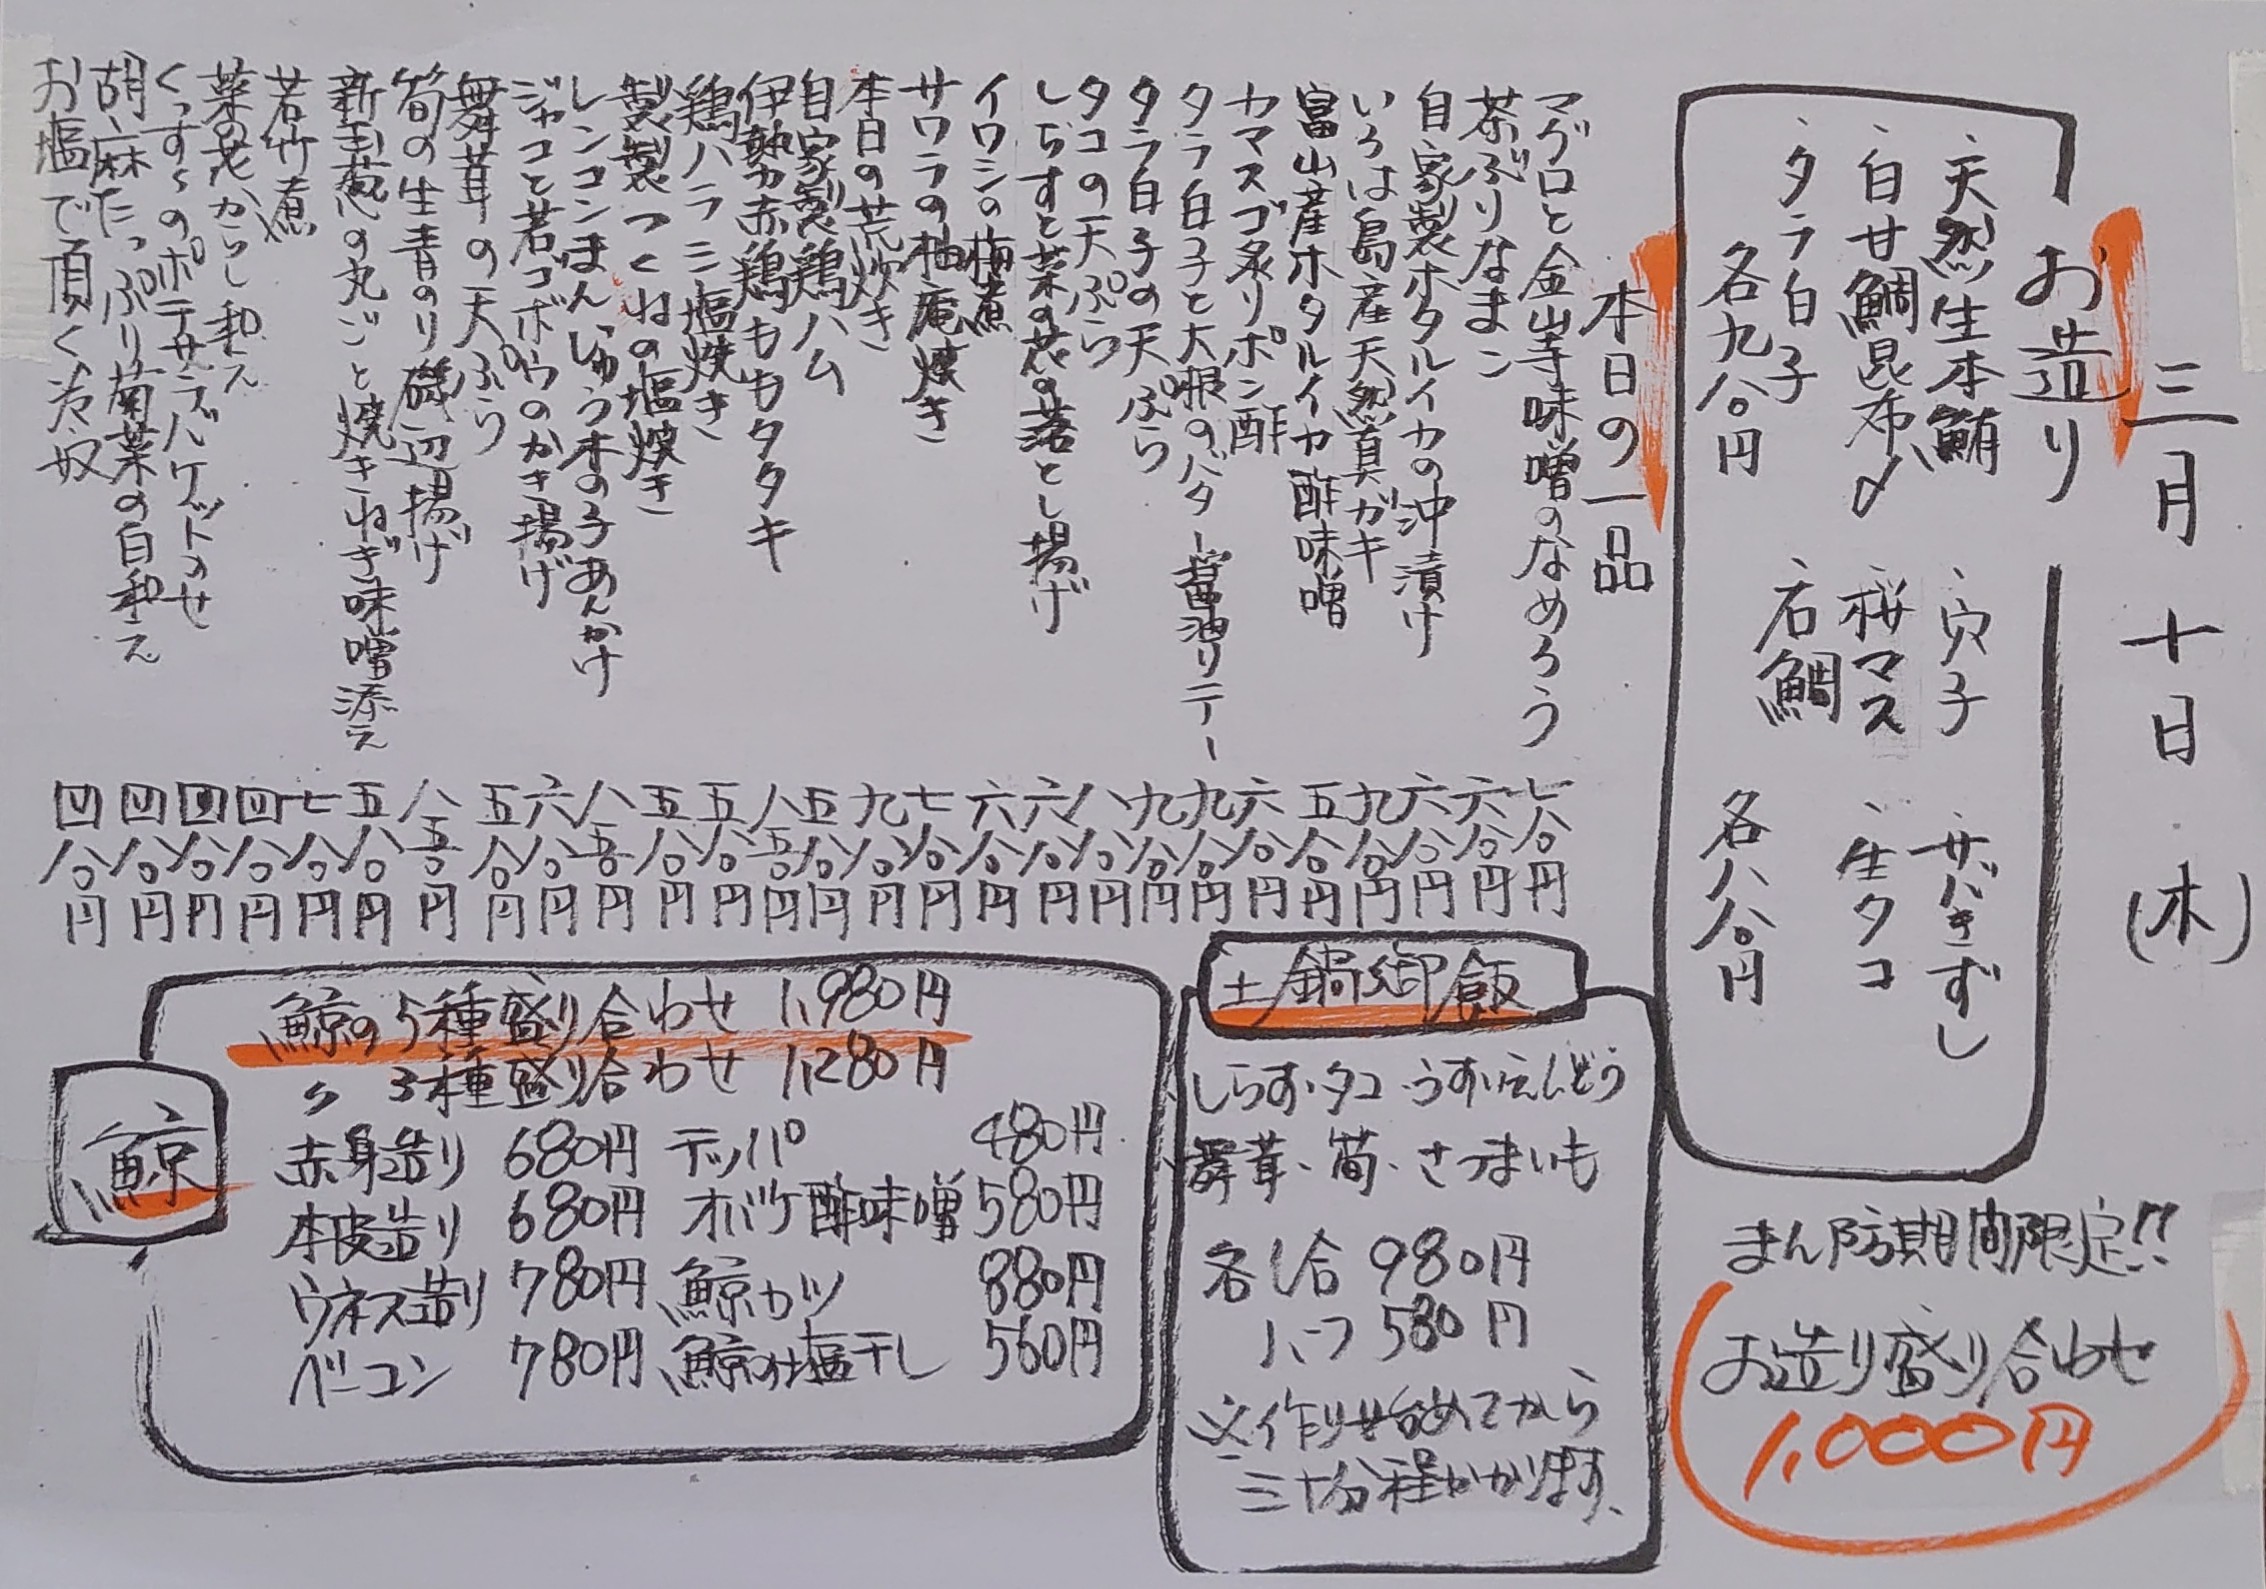 三月十日(木)
お造り
、天然生本鮪 、穴子 、サバきずし
、白甘鯛昆布〆 、桜マス 、生タコ
、タラ白子 、石鯛
各九八〇円 各八八〇円
本日の一品
マグロと金山寺味噌のなめろう 七八〇円
茶ぶりなまこ 六八〇円
自家製ホタルイカの沖漬け 六八〇円
いろは島産天然真ガキ 九八〇円
富山産ホタルイカ酢味噌 五八〇円
カマスゴ炙りポン酢 六八〇円
タラ白子と大根のバター醤油ソテー 九八〇円
タラ白子の天ぷら 九八〇円
タコの天ぷら 八八〇円
しらすと菜の花の落とし揚げ 六八〇円
イワシの梅煮 六八〇円
サワラの柚庵焼き 七八〇円
本日の荒炊き 九八〇円
自家製鶏ハム 五八〇円
伊勢赤鶏ももタタキ 八五〇円
鶏ハラミ塩焼き 五八〇円
製つくねの塩焼き 五八〇円
レンコンまんじゅう木の子あんかけ 八五〇円
ジャコと若ゴボウのかき揚げ 六八〇円
舞茸の天ぷら 五八〇円
筍の生青のり磯辺揚げ 八五〇円
新玉葱の丸ごと焼きねぎ味噌添え 五八〇円
若竹煮 七八〇円
菜の花からし和え 四八〇円
のポテサラバケットのせ 四八〇円
胡麻たっぷり菊菜の白和え 四八〇円
お塩で頂く冷奴 四八〇円
まん防期間限定!!
お造り盛り合わせ
1,000円
土鍋御飯
しらす、タコ、うすいえんどう
舞茸、筍、さつまいも
各1合 980円
ハーフ 580円
※作り始めてから
三十分程かかります、
鯨
鯨の5種盛り合わせ 1,980円
〃 3種盛り合わせ 1,280円
赤身造り 680円 テッパ 480円
本皮造り 680円 オバケ酢味噌 580円
ウネス造り 780円 鯨カツ 880円
ベーコン 780円 鯨の塩干し 560円